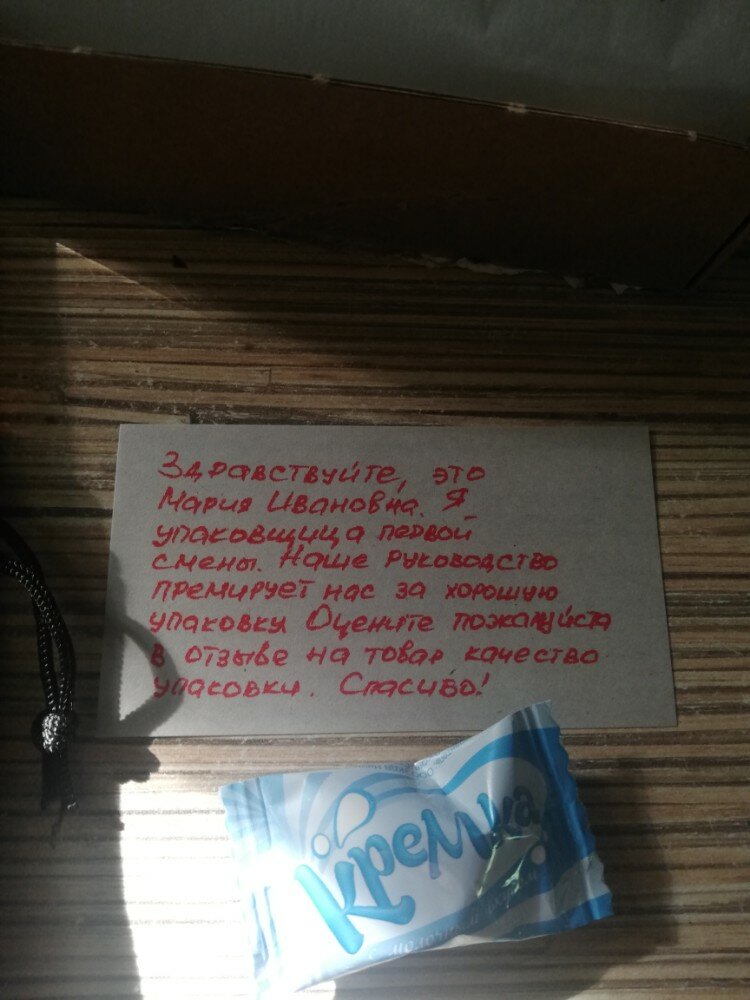 Здравствуйте, это
Мария Ивановна. Я
упаковщица первой
смены. Наше руководство
премирует нас за хорошую
упаковку Оцените пожалуйста
в отзыве на товар качество
упаковки. Спасибо!
Кремка
с молочным